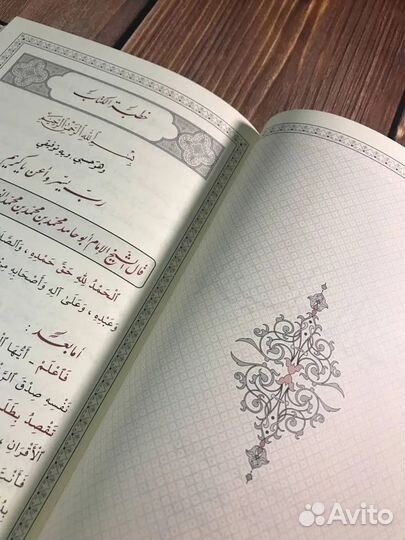 خطبة الكتاب
بسم الله الرحمن الرحيم
وهو حسبي وبه توفيقي
رب يسر وأعن يا كريم
قال الشيخ الإمام أبو حامد محمد بن محمد بن محمد
اَلْحَمْدُ لِلّٰهِ حَقَّ حَمْدِهِ ، وَالصَّلَا
وَعَبْدِهِ ، وَعَلَىٰ آلِهِ وَأَصْحَابِهِ مِنْ
أما بعد :
فَاعْلَمْ ـ أَيُّهَا الْ
نَفْسِهِ صِدْقَ الرَّ
تَقْصِدُ بِطَلَـ
الْأَقْرَانِ ،
فَأَنْتَ
Avito